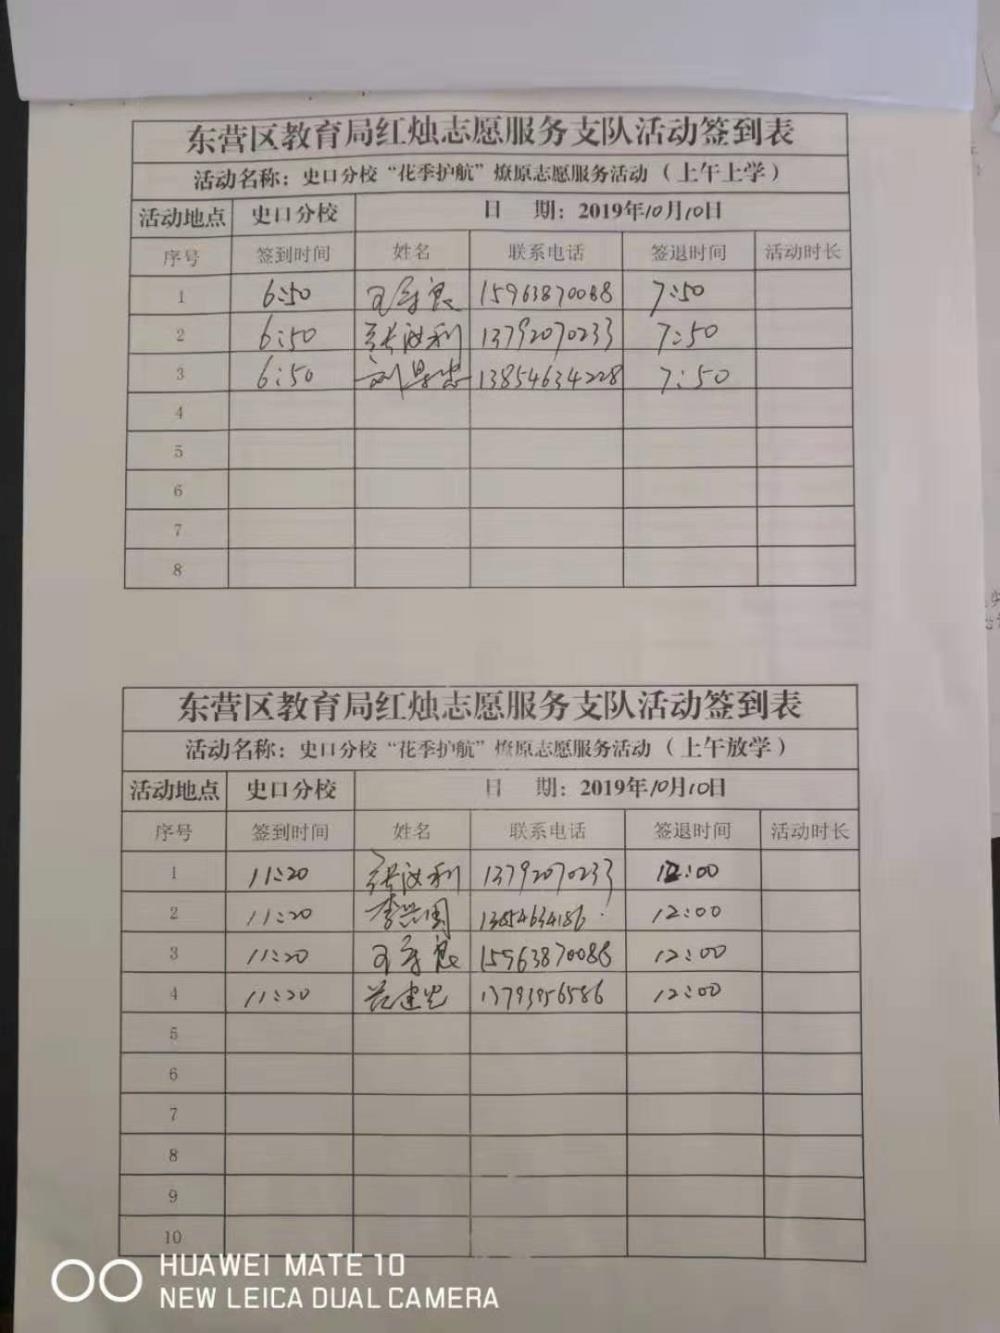 东营区教育局红烛志愿服务支队活动签到表
活动名称：史口分校“花季护航”燎原志愿服务活动（上午上学）
活动地点 史口分校 日 期：2019年10月10日
序号 签到时间 姓名 联系电话 签退时间 活动时长
1 6:50 15963870088 7:50
2 6:50 张汝利 13792070233 7:50
3 6:50 刘景忠 13854634228 7:50
4
5
6
7
8
东营区教育局红烛志愿服务支队活动签到表
活动名称：史口分校“花季护航”燎原志愿服务活动（上午放学）
活动地点 史口分校 日 期：2019年10月10日
序号 签到时间 姓名 联系电话 签退时间 活动时长
1 11:20 张汝利 13792070233 12:00
2 11:20 李兴国 13854634186 12:00
3 11:20 15963870088 12:00
4 11:20 13793956586 12:00
5
6
7
8
9
10
HUAWEI MATE 10
NEW LEICA DUAL CAMERA